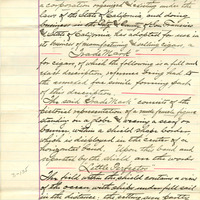 corporation organized & existing under the
laws of the State of California and doing
business in the City & County of San Francisco
& State of California has adopted for use in
its business of manufacturing & selling cigars, a
Trade Mark
for cigars, of which the following is a full and
exact description, reference being had to
the annexed fac simile forming part
of this description.
The said Trade Mark consists of the
pictorial representation of a female figure
standing on a globe & bearing a
within a shield shape border,
which is displayed in the center of a
band. Upon this band and
separated by the shield are the words
The field within the shield contains a view
of the ocean with ships under full sail
in the distance; the setting sun partly